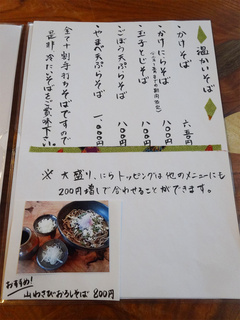 温かいそば
・かけそば 六五〇円
・かけにらそば 八〇〇円
・玉子とじそば 八〇〇円
・ごぼう天ぷらそば 八〇〇円
・やまべ天ぷらそば 一、〇〇〇円
全て十割手打ちそばですので
是非、冷たいそばをご賞味下さい
※ 大盛り、にらトッピングは他のメニューにも
200円増しで合わせることができます。
おすすめ!
山わさびおろしそば 800円